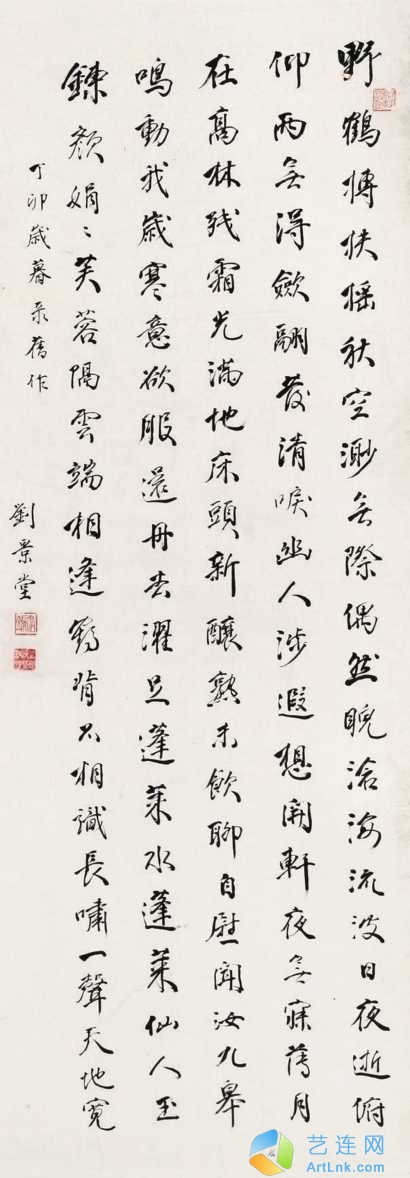 野鶴摶扶搖秋空渺無際偶然睨滄海流波日夜逝俯
仰兩無得斂翮發清唳幽人涉遐想開軒夜無寐薄月
在高林殘霜光滿地床頭新釀熟未飲聊自慰聞汝九皋
鳴動我歲寒意欲服還丹去濯足蓬萊水蓬萊仙人玉
鍊顏娟〻芙蓉隔雲端相逢鶴背不相識長嘯一聲天地寬
丁卯歲暮录舊作
劉景堂
艺连网
ArtLnk.com